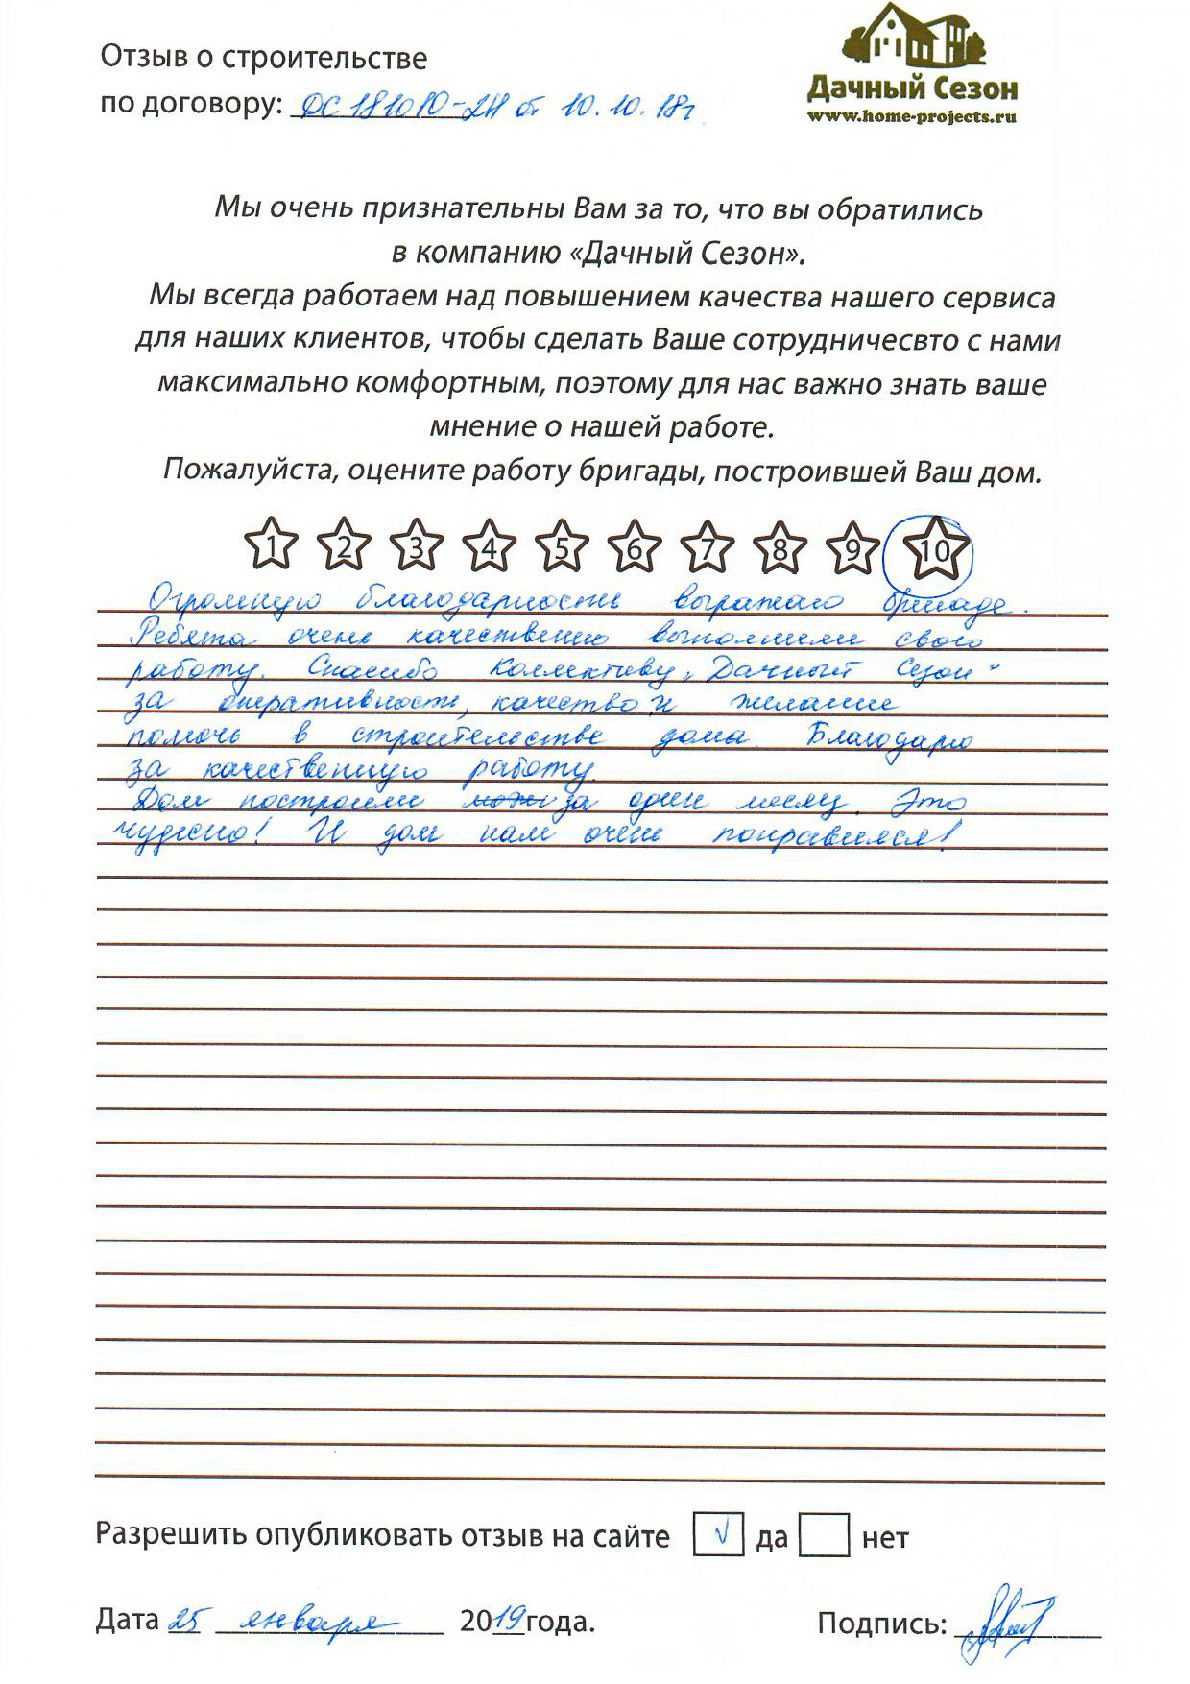 Отзыв о строительстве
по договору: ДС 181010-2Н от 10.10.18г
Дачный Сезон
www.home-projects.ru
Мы очень признательны Вам за то, что вы обратились
в компанию «Дачный Сезон».
Мы всегда работаем над повышением качества нашего сервиса
для наших клиентов, чтобы сделать Ваше сотрудничесвто с нами
максимально комфортным, поэтому для нас важно знать ваше
мнение о нашей работе.
Пожалуйста, оцените работу бригады, построившей Ваш дом.
1 2 3 4 5 6 7 8 9 10
Огромную благодарность выражаю бригаде.
Ребята очень качественно выполнили свою
работу. Спасибо коллективу „Дачный Сезон“
за оперативность, качество и желание
помочь в строительстве дома. Благодарю
за качественную работу.
Дом построили за один месяц. Это
чудесно! И дом нам очень понравился!
Разрешить опубликовать отзыв на сайте √ да нет
Дата 25 января 2019 года. Подпись: